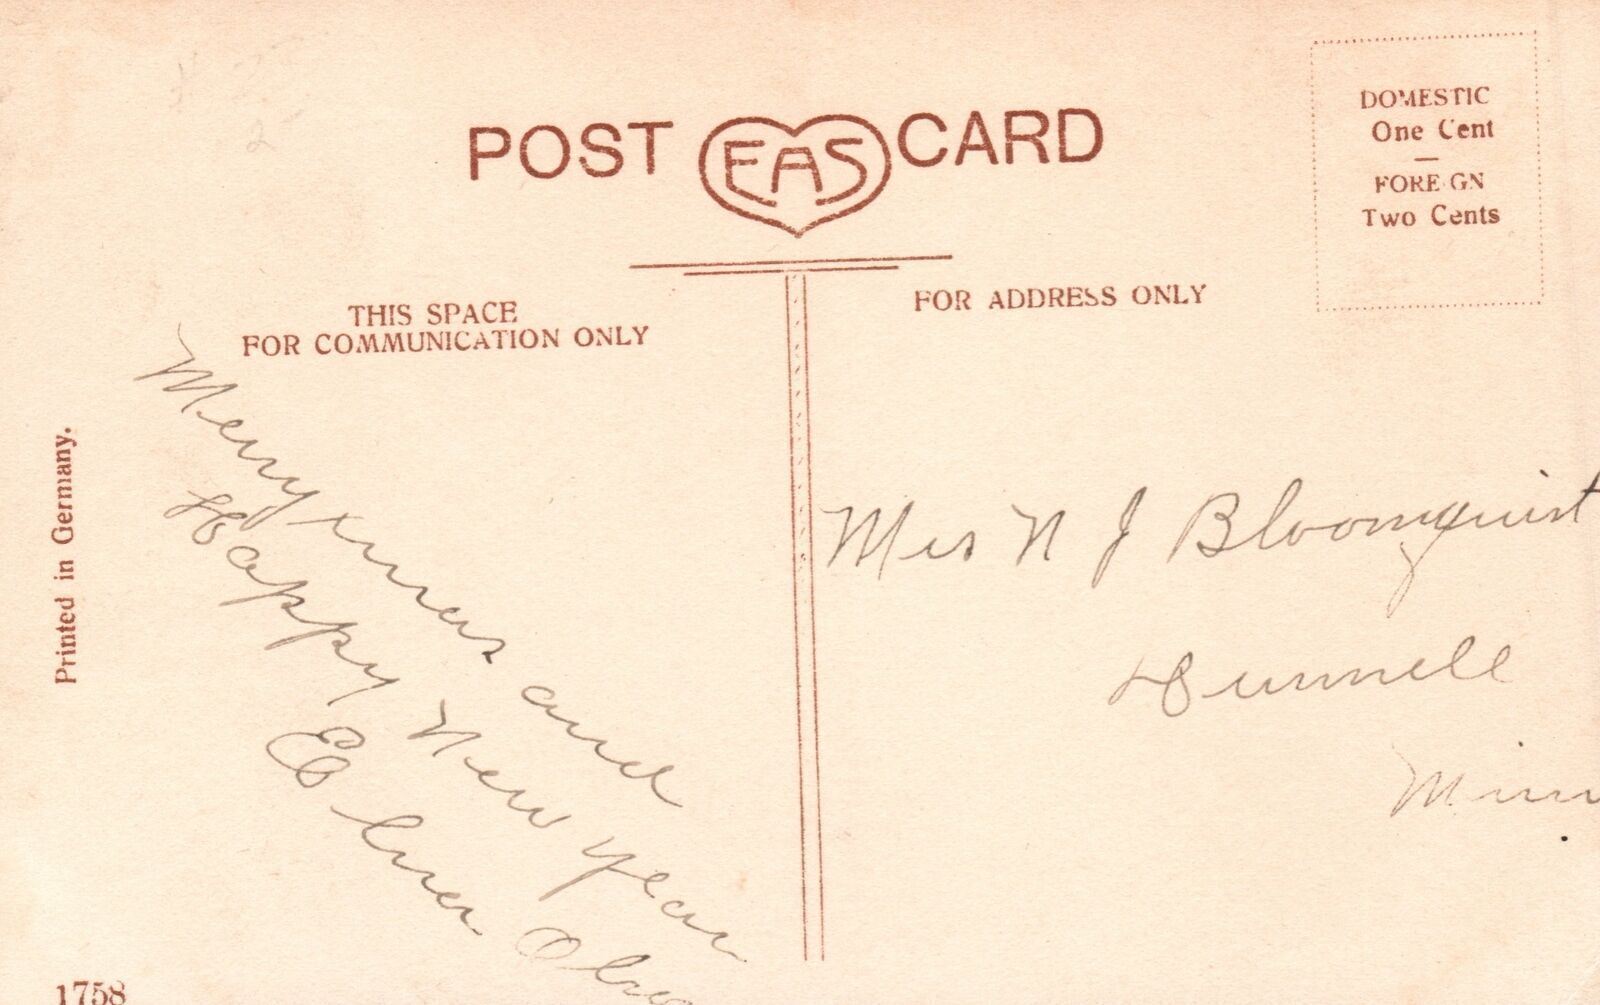 POST EAS CARD
DOMESTIC
One Cent
—
FOREIGN
Two Cents
THIS SPACE
FOR COMMUNICATION ONLY
FOR ADDRESS ONLY
Printed in Germany.
Merry Xmas and
Happy New Year
Mrs N J Bloomquist
Dunnell
Minn
1758